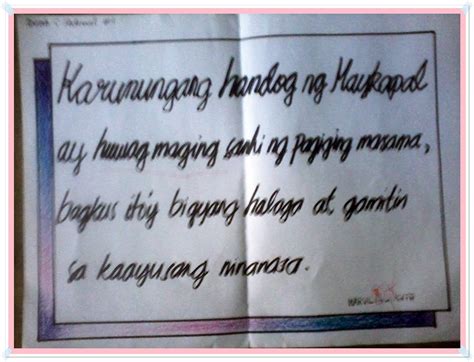 Karunungang handog ng Maykapal
ay huwag maging sanhi ng pagiging masama,
bagkus ito'y bigyang halaga at gamitin
sa kaayusang ninanasa.